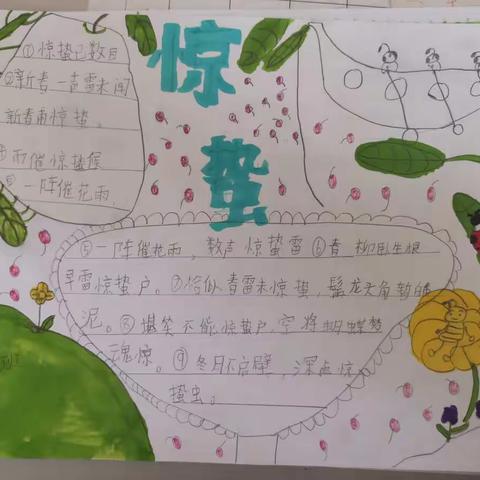 惊蛰
①惊蛰已数日
②新春一声雷未闻
新春雨惊蛰。
雨催惊蛰候
一阵催花雨,
⑤一阵催花雨,数声惊蛰雷⑥春 柳卧生根
早雷惊蛰户。⑦恰似春雷未惊蛰,髯龙头角暂
泥。⑧嬉笑不能惊蛰户,空将蝴蝶梦
魂惊。⑨冬月不启壁,深点惊
蛰虫。